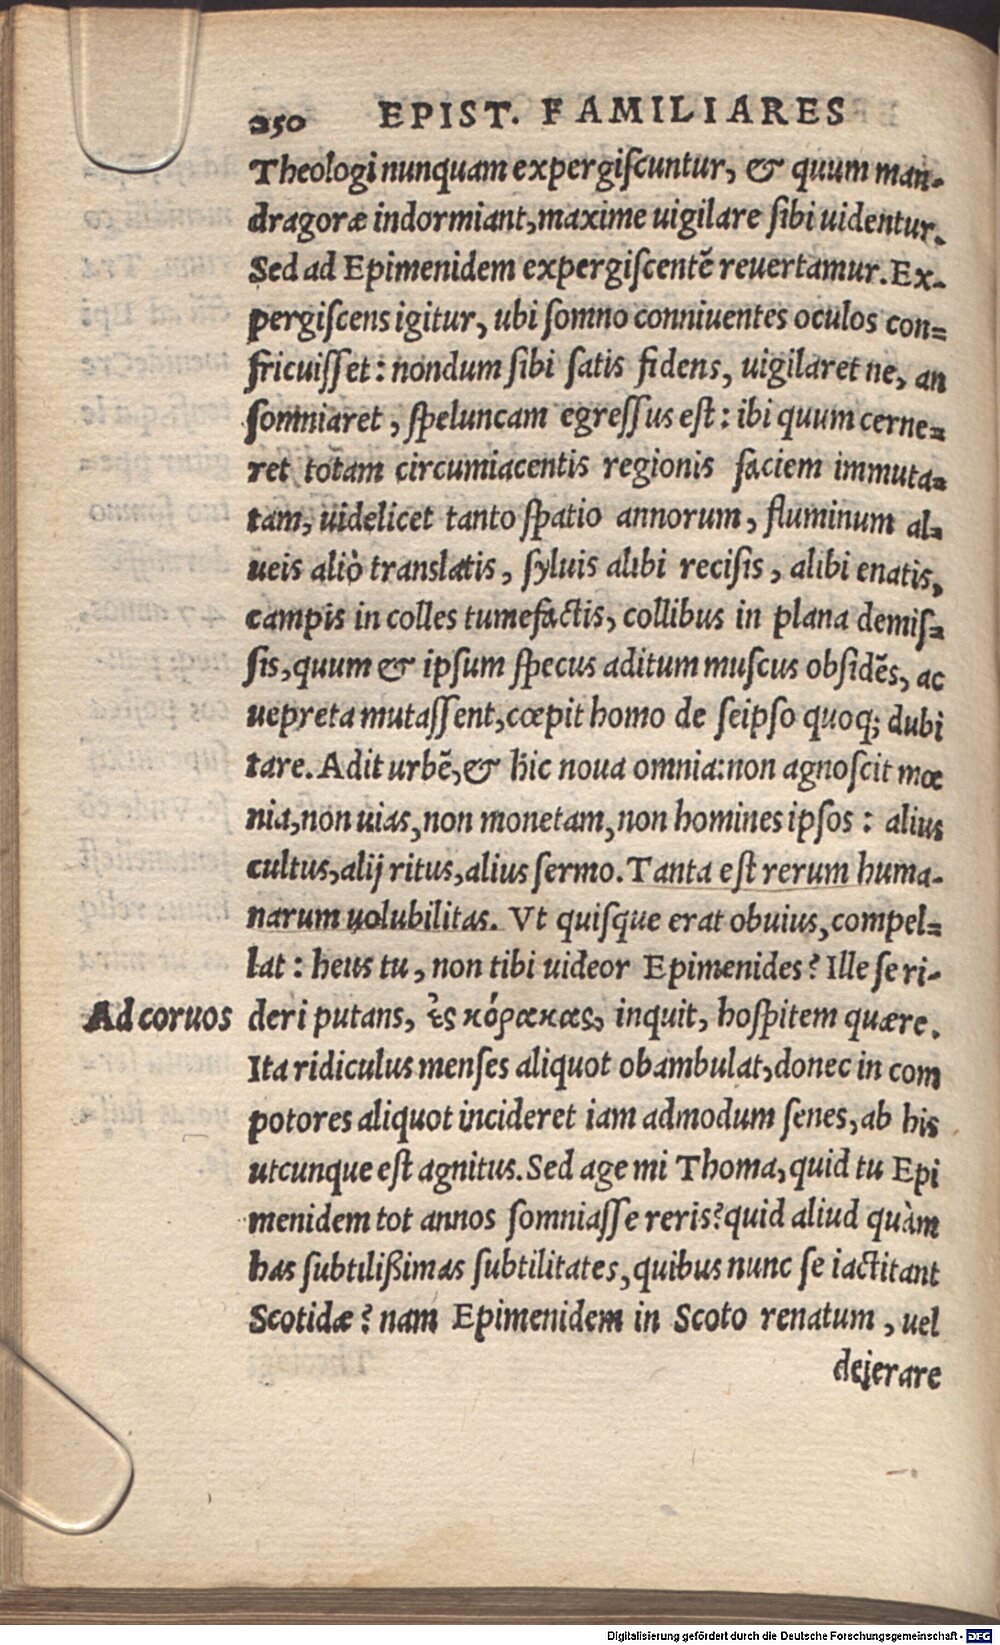 250 EPIST. FAMILIARES
Theologi nunquam expergiſcuntur, & quum man-
dragoræ indormiant, maxime uigilare ſibi uidentur.
Sed ad Epimenidem expergiſcentē reuertamur. Ex-
pergiſcens igitur, ubi ſomno conniuentes oculos con=
fricuiſſet: nondum ſibi ſatis fidens, uigilaret ne, an
ſomniaret, ſpeluncam egreſſus eſt: ibi quum cerne=
ret totam circumiacentis regionis faciem immuta=
tam, uidelicet tanto ſpatio annorum, fluminum al=
ueis aliò translatis, ſyluis alibi reciſis, alibi enatis,
campis in colles tumefactis, collibus in plana demiſ=
ſis, quum & ipſum ſpecus aditum muſcus obſidēs, ac
uepreta mutaſſent, cœpit homo de ſeipſo quoq; dubi
tare. Adit urbē, & hic noua omnia: non agnoſcit mœ
nia, non uias, non monetam, non homines ipſos: alius
cultus, alij ritus, alius ſermo. Tanta eſt rerum huma-
narum uolubilitas. Vt quiſque erat obuius, compel=
lat: heus tu, non tibi uideor Epimenides? Ille ſe ri-
Ad coruos deri putans, ἐς κόρακας, inquit, hoſpitem quære.
Ita ridiculus menſes aliquot obambulat, donec in com
potores aliquot incideret iam admodum ſenes, ab his
utcunque eſt agnitus. Sed age mi Thoma, quid tu Epi
menidem tot annos ſomniaſſe reris? quid aliud quàm
has ſubtilißimas ſubtilitates, quibus nunc ſe iactitant
Scotidæ? nam Epimenidem in Scoto renatum, uel
dejerare
Digitalisierung gefördert durch die Deutsche Forschungsgemeinschaft - DFG